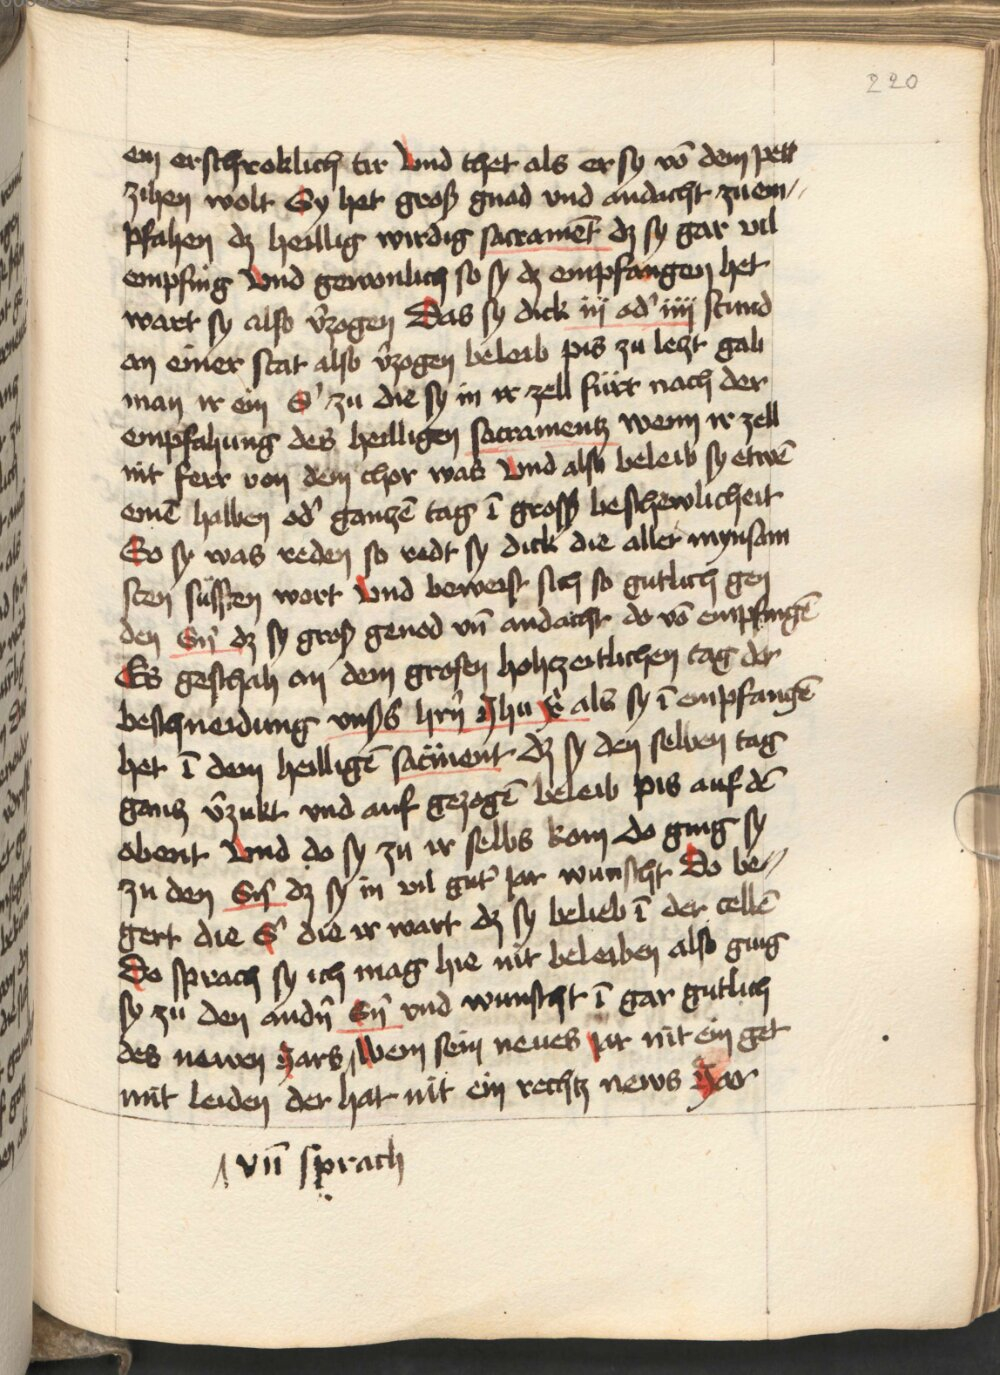 220
ein erschroklich tir Vnd thet als er sy vō dem pett
zihen wolt Sy het groß gnad vnd andacht zu em⸗
pfahen dz heillig wirdig sacramēt dz sy gar vil
empfing Vnd gewonlich so sy dz empfangen het
wart sy also v̄zogen Das sy dick iij od' iiij stund
an einer stat also v̄zogen beleib pis zu letzt gab
man ir ein S' zu die sy in ir zell fürt nach der
empfahung des heilligen sacramentz wenn ir zell
nit ferr von dem chor was Vnd also beleib sy etwē
einē halben od' ganzē tag ī grosß beschewlicheit
So sy was reden so redt sy dick die aller mynsam
sten süssten wort Vnd beweist sich so gutlich gen
den Sn̄ dz sy groß genod vn̄ andacht do vō empfingē
Es geschah an dem grosen hohczeitlichen tag der
beschneidung vnsß hrn̄ Jhu x̄ als sy ī empfangē
het ī dem heilligē sac̄ment dz sy den selben tag
gantz v̄zukt vnd auf gezogē beleib pis auf dē
obent Vnd do sy zu ir selbs kom do ging sy
zu den Sn̄ dz sy in vil gut' jar wunscht Do be⸗
gert die S' die ir wart dz sy belieb ī der cellē
Do sprach sy ich mag hie nit beleiben also ging
sy zu den andn̄ Sn̄ vnd wunscht ī gar gutlich
des newen Jars Wem sein neues jar nit ein get
mit leiden der hat nit ein rechtz news Jar
vn̄ sprach